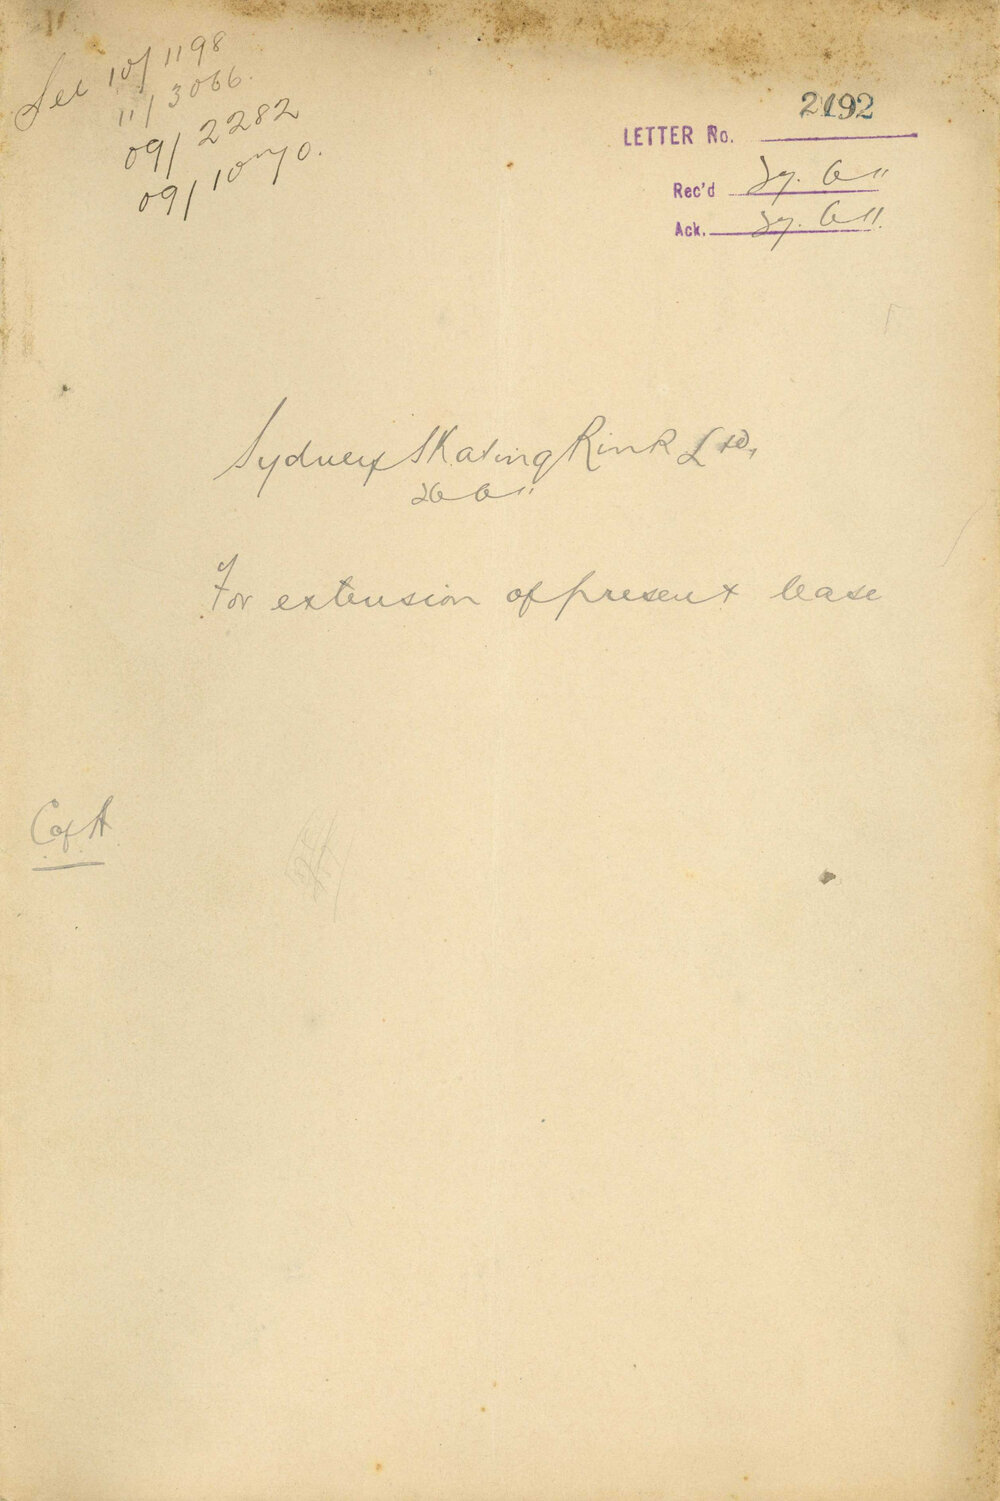 See 10/1198
11/3066.
09/2282
09/10
LETTER No. 2192
Rec'd 27. 6 11
Ack. 27. 6 11.
Sydney Skating Rink Ltd,
26 6 11
For extension of present lease
C of A